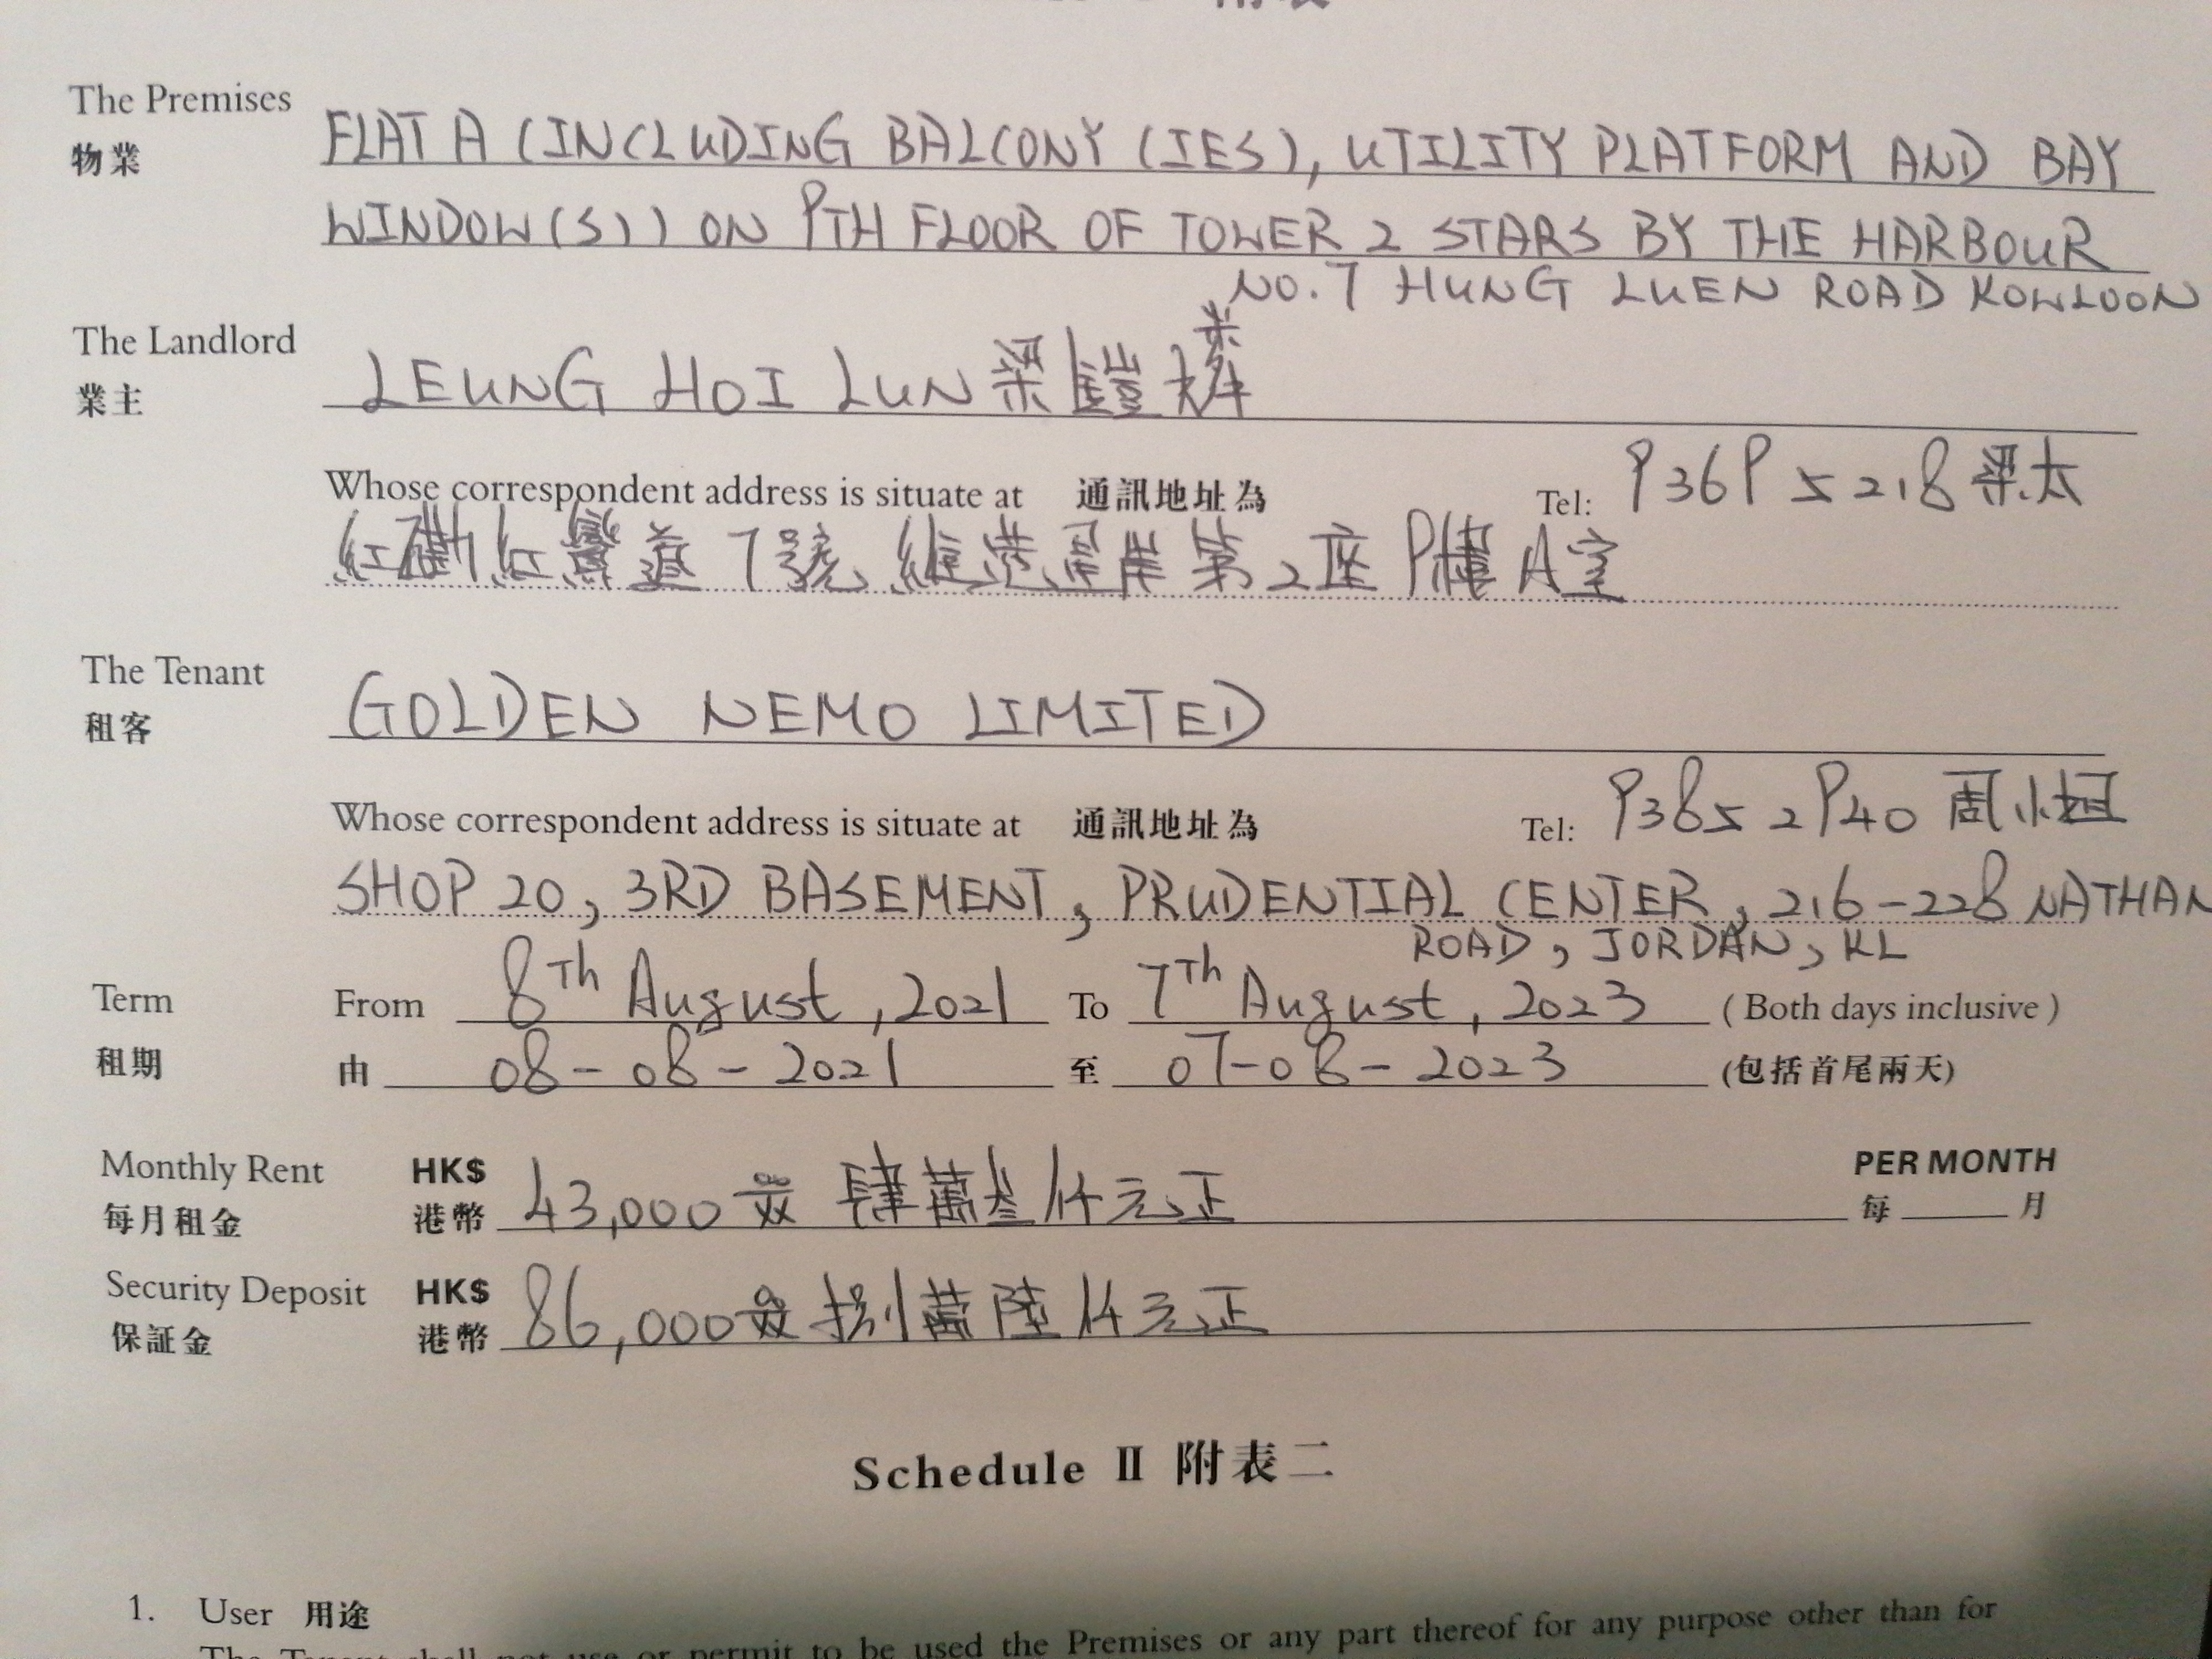 附表
The Premises
物業
FLAT A (INCLUDING BALCONY (IES), UTILITY PLATFORM AND BAY
WINDOW(S)) ON 9TH FLOOR OF TOWER 2 STARS BY THE HARBOUR
NO. 7 HUNG LUEN ROAD KOWLOON
The Landlord
業主
LEUNG HOI LUN 梁鎧
Whose correspondent address is situate at 通訊地址為 Tel: 9369 5218 梁太
紅磡紅鸞道7號 維港星岸第2座9樓A室
The Tenant
租客
GOLDEN NEMO LIMITED
Whose correspondent address is situate at 通訊地址為 Tel: 9385 2940 周小姐
SHOP 20, 3RD BASEMENT, PRUDENTIAL CENTER, 216-228 NATHAN
ROAD, JORDAN, KL
Term From 8Th August, 2021 To 7Th August, 2023 (Both days inclusive)
租期 由 08-08-2021 至 07-08-2023 (包括首尾兩天)
Monthly Rent HK$ PER MONTH
每月租金 港幣 43,000 肆萬叁仟元正 每 月
Security Deposit HK$
保証金 港幣 86,000 捌萬陸仟元正
Schedule II 附表二
1. User 用途
The Tenant shall not use or permit to be used the Premises or any part thereof for any purpose other than for